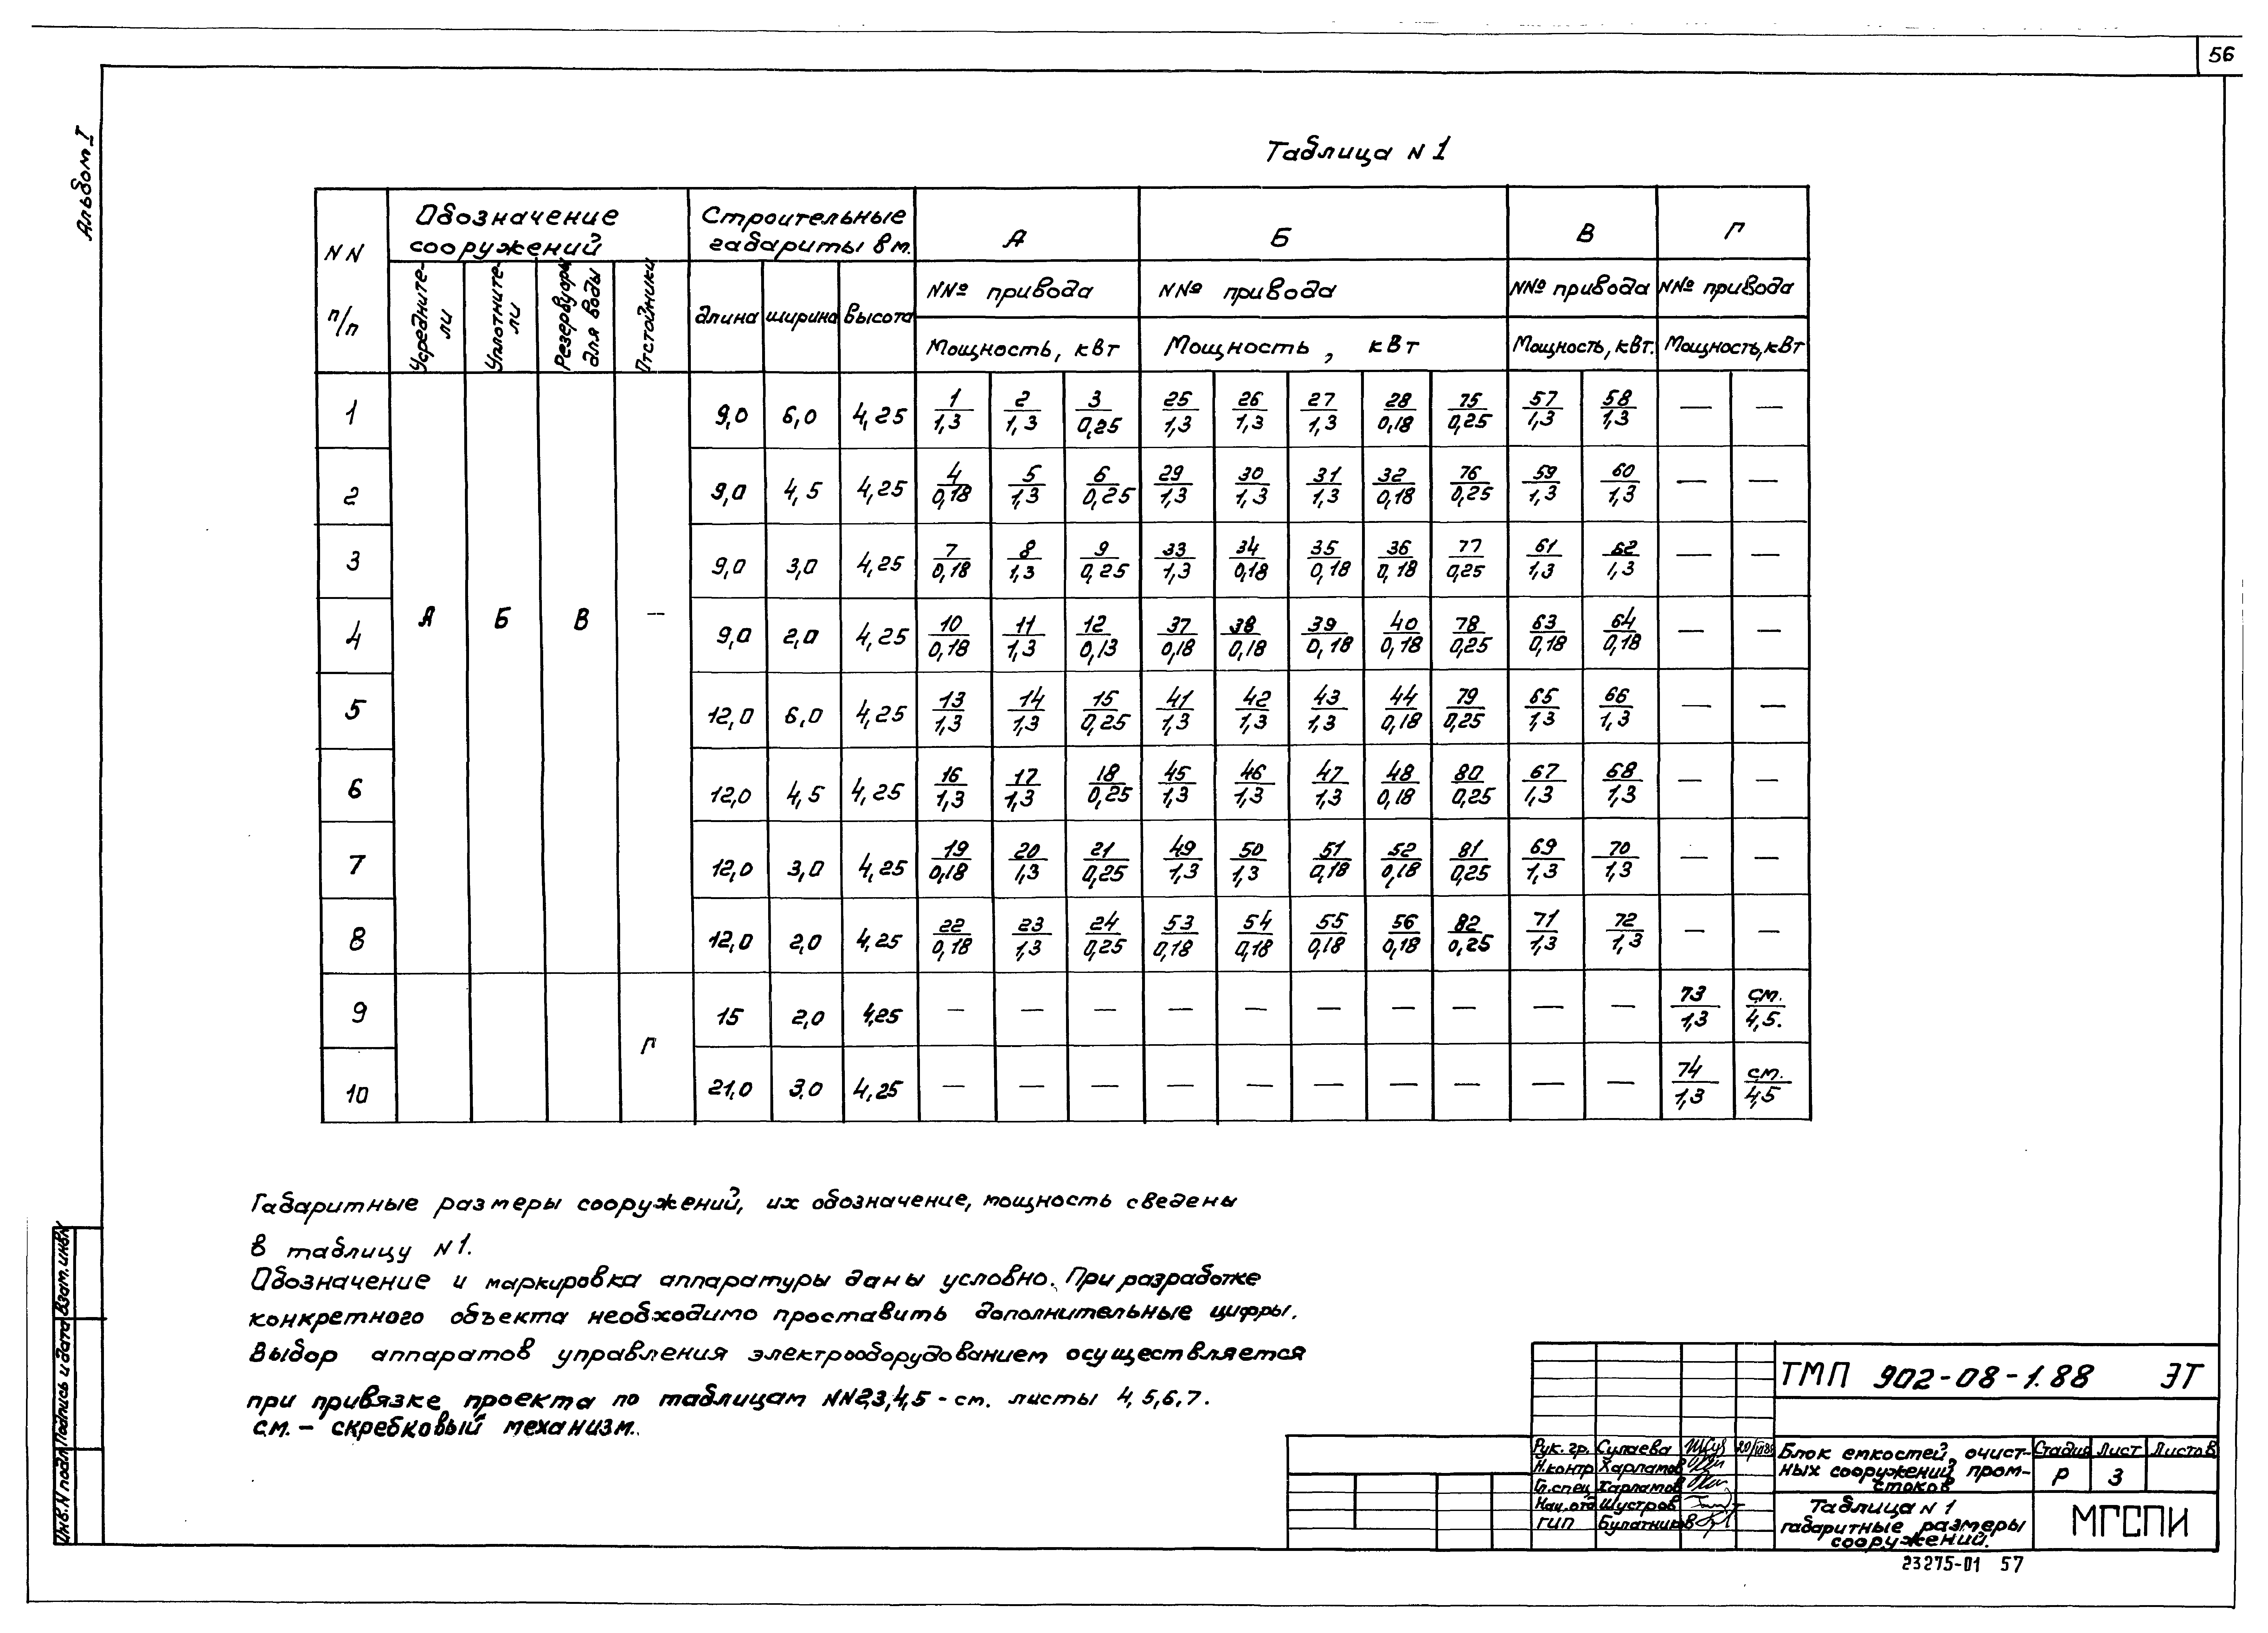 56
Альбом I
Таблица N 1
NN п/п
Обозначение сооружений
Строительные габариты в м.
А
Б
В
Г
Усредните-
ли
Уплотните-
ли
Резервуары
для воды
Отстойники
длина ширина высота
NNº привода
NNº привода
NNº привода
NNº привода
Мощность, кВт
Мощность, кВт
Мощность, кВт.
Мощность, кВт
А Б В —
Г
1 9,0 6,0 4,25 1/1,3 2/1,3 3/0,25 25/1,3 26/1,3 27/1,3 28/0,18 75/0,25 57/1,3 58/1,3 — —
2 9,0 4,5 4,25 4/0,18 5/1,3 6/0,25 29/1,3 30/1,3 31/1,3 32/0,18 76/0,25 59/1,3 60/1,3 — —
3 9,0 3,0 4,25 7/0,18 8/1,3 9/0,25 33/1,3 34/0,18 35/0,18 36/0,18 77/0,25 61/1,3 62/1,3 — —
4 9,0 2,0 4,25 10/0,18 11/1,3 12/0,13 37/0,18 38/0,18 39/0,18 40/0,18 78/0,25 63/0,18 64/0,18 — —
5 12,0 6,0 4,25 13/1,3 14/1,3 15/0,25 41/1,3 42/1,3 43/1,3 44/0,18 79/0,25 65/1,3 66/1,3 — —
6 12,0 4,5 4,25 16/1,3 17/1,3 18/0,25 45/1,3 46/1,3 47/1,3 48/0,18 80/0,25 67/1,3 68/1,3 — —
7 12,0 3,0 4,25 19/0,18 20/1,3 21/0,25 49/1,3 50/1,3 51/0,18 52/0,18 81/0,25 69/1,3 70/1,3 — —
8 12,0 2,0 4,25 22/0,18 23/1,3 24/0,25 53/0,18 54/0,18 55/0,18 56/0,18 82/0,25 71/1,3 72/1,3 — —
9 15 2,0 4,25 — — — — — — — — — — 73/1,3 см./4,5.
10 21,0 3,0 4,25 — — — — — — — — — — 74/1,3 см./4,5
Габаритные размеры сооружений, их обозначение, мощность сведены
в таблицу N1.
Обозначение и маркировка аппаратуры даны условно. При разработке
конкретного объекта необходимо проставить дополнительные цифры.
Выбор аппаратов управления электрооборудованием осуществляется
при привязке проекта по таблицам NN2,3,4,5 - см. листы 4,5,6,7.
см. - скребковый механизм.
Инв.N подл. Подпись и дата Взам.инв.N
ТМП 902-08-1.88 ЭТ
Рук. гр. Сулаева
Н.контр Харламов
Гл.спец Харламов
Нач.отд Шустров
ГИП Булатников
Блок емкостей, очист-
ных сооружений пром-
стоков
Стадия Лист Листов
Р 3
Таблица N 1
габаритные размеры
сооружений.
МГСПИ
23275-01 57